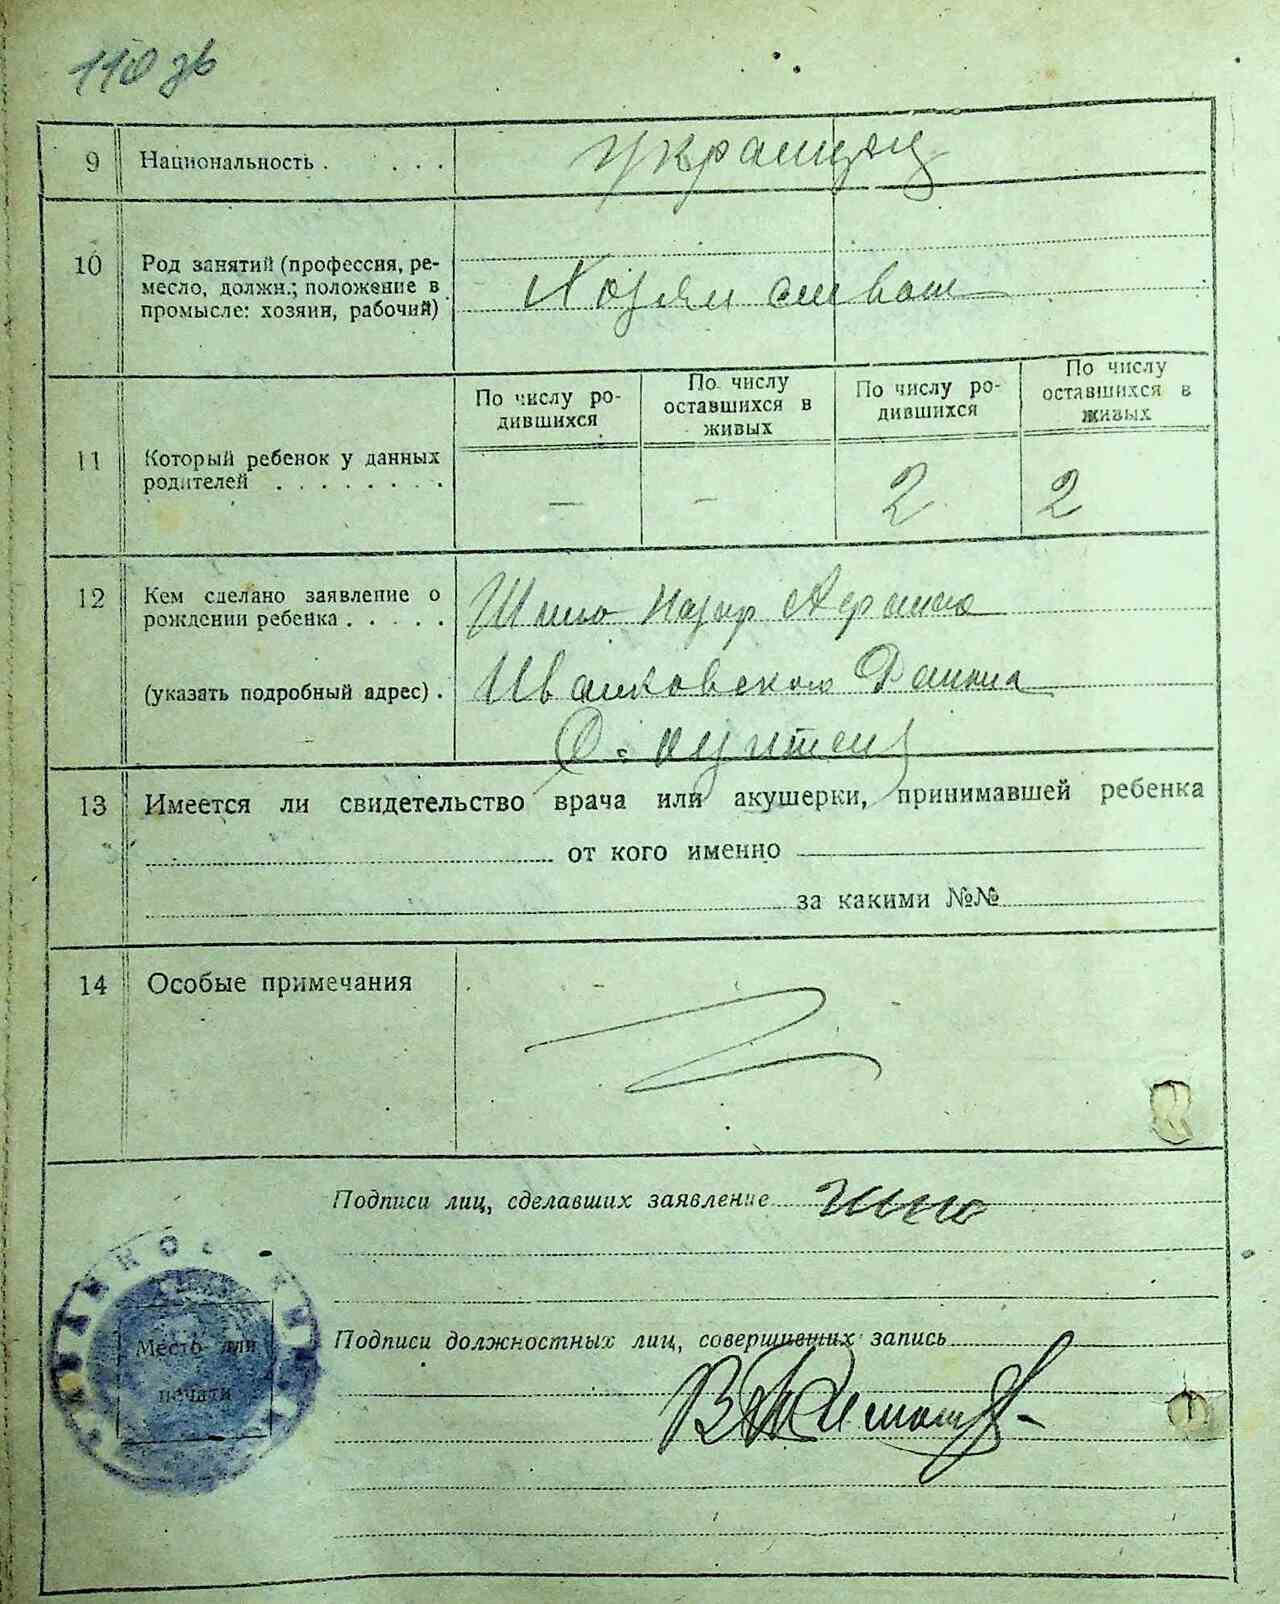 110 зв
9 Национальность . . . . украинец
10 Род занятий (профессия, ре-
месло, должн.; положение в
промысле: хозяин, рабочий)
Хозяин
11 Который ребенок у данных
родителей . . . . . . . .
По числу ро-
дившихся
По числу
оставшихся в
живых
По числу ро-
дившихся
По числу
оставшихся в
живых
— — 2 2
12 Кем сделано заявление о
рождении ребенка . . . . .
(указать подробный адрес) .
Шило Назар
Иванковского Района
С.
13 Имеется ли свидетельство врача или акушерки, принимавшей ребенка
от кого именно
за какими №№
14 Особые примечания
Подписи лиц, сделавших заявление Шило
Место для
печати
Подписи должностных лиц, совершивших запись